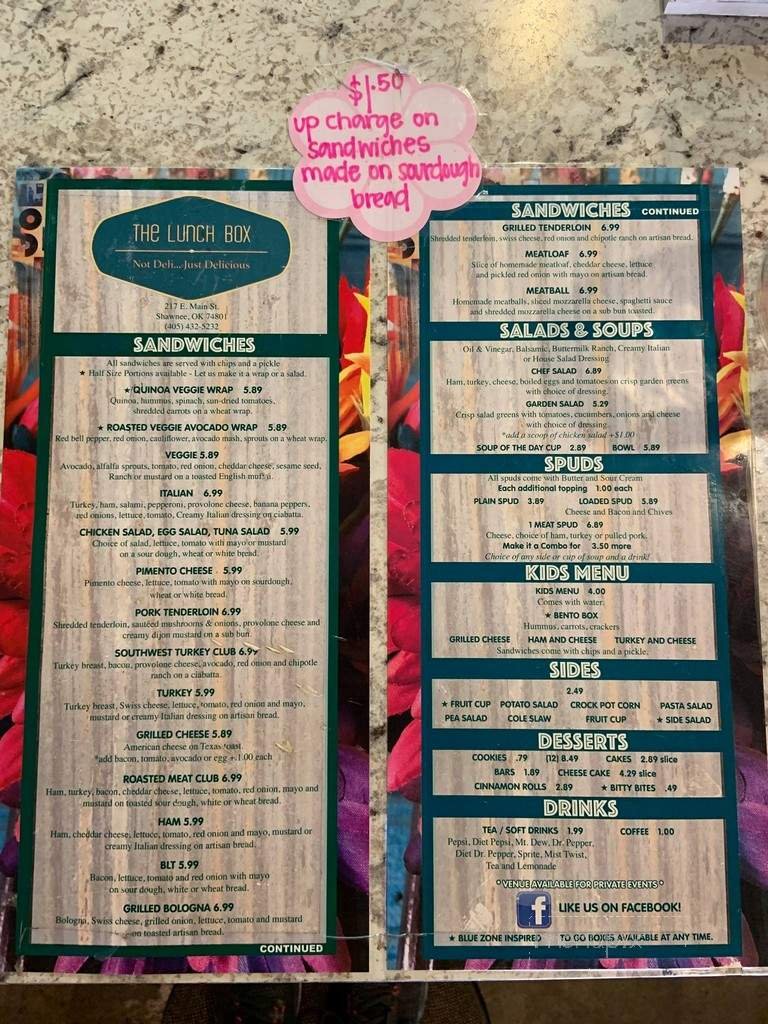 $1.50
up charge on
sandwiches
made on sourdough
bread
THE LUNCH BOX
Not Deli... Just Delicious
217 E. Main St.
Shawnee, OK 74801
(405) 432-5232
SANDWICHES
All sandwiches are served with chips and a pickle
★ Half Size Portions available - Let us make it a wrap or a salad.
★ QUINOA VEGGIE WRAP 5.89
Quinoa, hummus, spinach, sun-dried tomatoes,
shredded carrots on a wheat wrap.
★ ROASTED VEGGIE AVOCADO WRAP 5.89
Red bell pepper, red onion, cauliflower, avocado mash, sprouts on a wheat wrap.
VEGGIE 5.89
Avocado, alfalfa sprouts, tomato, red onion, cheddar cheese, sesame seed,
Ranch or mustard on a toasted English muffin
ITALIAN 6.99
Turkey, ham, salami, pepperoni, provolone cheese, banana peppers,
red onions, lettuce, tomato, Creamy Italian dressing on ciabatta.
CHICKEN SALAD, EGG SALAD, TUNA SALAD 5.99
Choice of salad, lettuce, tomato with mayo or mustard
on a sour dough, wheat or white bread.
PIMENTO CHEESE 5.99
Pimento cheese, lettuce, tomato with mayo on sourdough,
wheat or white bread.
PORK TENDERLOIN 6.99
Shredded tenderloin, sautéed mushrooms & onions, provolone cheese and
creamy dijon mustard on a sub bun.
SOUTHWEST TURKEY CLUB 6.99
Turkey breast, bacon, provolone cheese, avocado, red onion and chipotle
ranch on a ciabatta.
TURKEY 5.99
Turkey breast, Swiss cheese, lettuce, tomato, red onion and mayo,
mustard or creamy Italian dressing on artisan bread.
GRILLED CHEESE 5.89
American cheese on Texas toast.
*add bacon, tomato, avocado or egg +1.00 each
ROASTED MEAT CLUB 6.99
Ham, turkey, bacon, cheddar cheese, lettuce, tomato, red onion, mayo and
mustard on toasted sour dough, white or wheat bread.
HAM 5.99
Ham, cheddar cheese, lettuce, tomato, red onion and mayo, mustard or
creamy Italian dressing on artisan bread.
BLT 5.99
Bacon, lettuce, tomato and red onion with mayo
on sour dough, white or wheat bread.
GRILLED BOLOGNA 6.99
Bologna, Swiss cheese, grilled onion, lettuce, tomato and mustard
on toasted artisan bread.
CONTINUED
SANDWICHES CONTINUED
GRILLED TENDERLOIN 6.99
Shredded tenderloin, swiss cheese, red onion and chipotle ranch on artisan bread.
MEATLOAF 6.99
Slice of homemade meatloaf, cheddar cheese, lettuce
and pickled red onion with mayo on artisan bread.
MEATBALL 6.99
Homemade meatballs, sliced mozzarella cheese, spaghetti sauce
and shredded mozzarella cheese on a sub bun toasted.
SALADS & SOUPS
Oil & Vinegar, Balsamic, Buttermilk Ranch, Creamy Italian
or House Salad Dressing
CHEF SALAD 6.89
Ham, turkey, cheese, boiled eggs and tomatoes on crisp garden greens
with choice of dressing.
GARDEN SALAD 5.29
Crisp salad greens with tomatoes, cucumbers, onions and cheese
with choice of dressing.
*add a scoop of chicken salad +$1.00
SOUP OF THE DAY CUP 2.89 BOWL 5.89
SPUDS
All spuds come with Butter and Sour Cream
Each additional topping 1.00 each
PLAIN SPUD 3.89 LOADED SPUD 5.89
Cheese and Bacon and Chives
1 MEAT SPUD 6.89
Cheese, choice of ham, turkey or pulled pork.
Make it a Combo for 3.50 more
Choice of any side or cup of soup and a drink!
KIDS MENU
KIDS MENU 4.00
Comes with water
★ BENTO BOX
Hummus, carrots, crackers
GRILLED CHEESE HAM AND CHEESE TURKEY AND CHEESE
Sandwiches come with chips and a pickle.
SIDES
2.49
★ FRUIT CUP POTATO SALAD CROCK POT CORN PASTA SALAD
PEA SALAD COLE SLAW FRUIT CUP ★ SIDE SALAD
DESSERTS
COOKIES .79 (12) 8.49 CAKES 2.89 slice
BARS 1.89 CHEESE CAKE 4.29 slice
CINNAMON ROLLS 2.89 ★ BITTY BITES .49
DRINKS
TEA / SOFT DRINKS 1.99 COFFEE 1.00
Pepsi, Diet Pepsi, Mt. Dew, Dr. Pepper,
Diet Dr. Pepper, Sprite, Mist Twist,
Tea and Lemonade
* VENUE AVAILABLE FOR PRIVATE EVENTS *
f LIKE US ON FACEBOOK!
★ BLUE ZONE INSPIRED TO GO BOXES AVAILABLE AT ANY TIME.